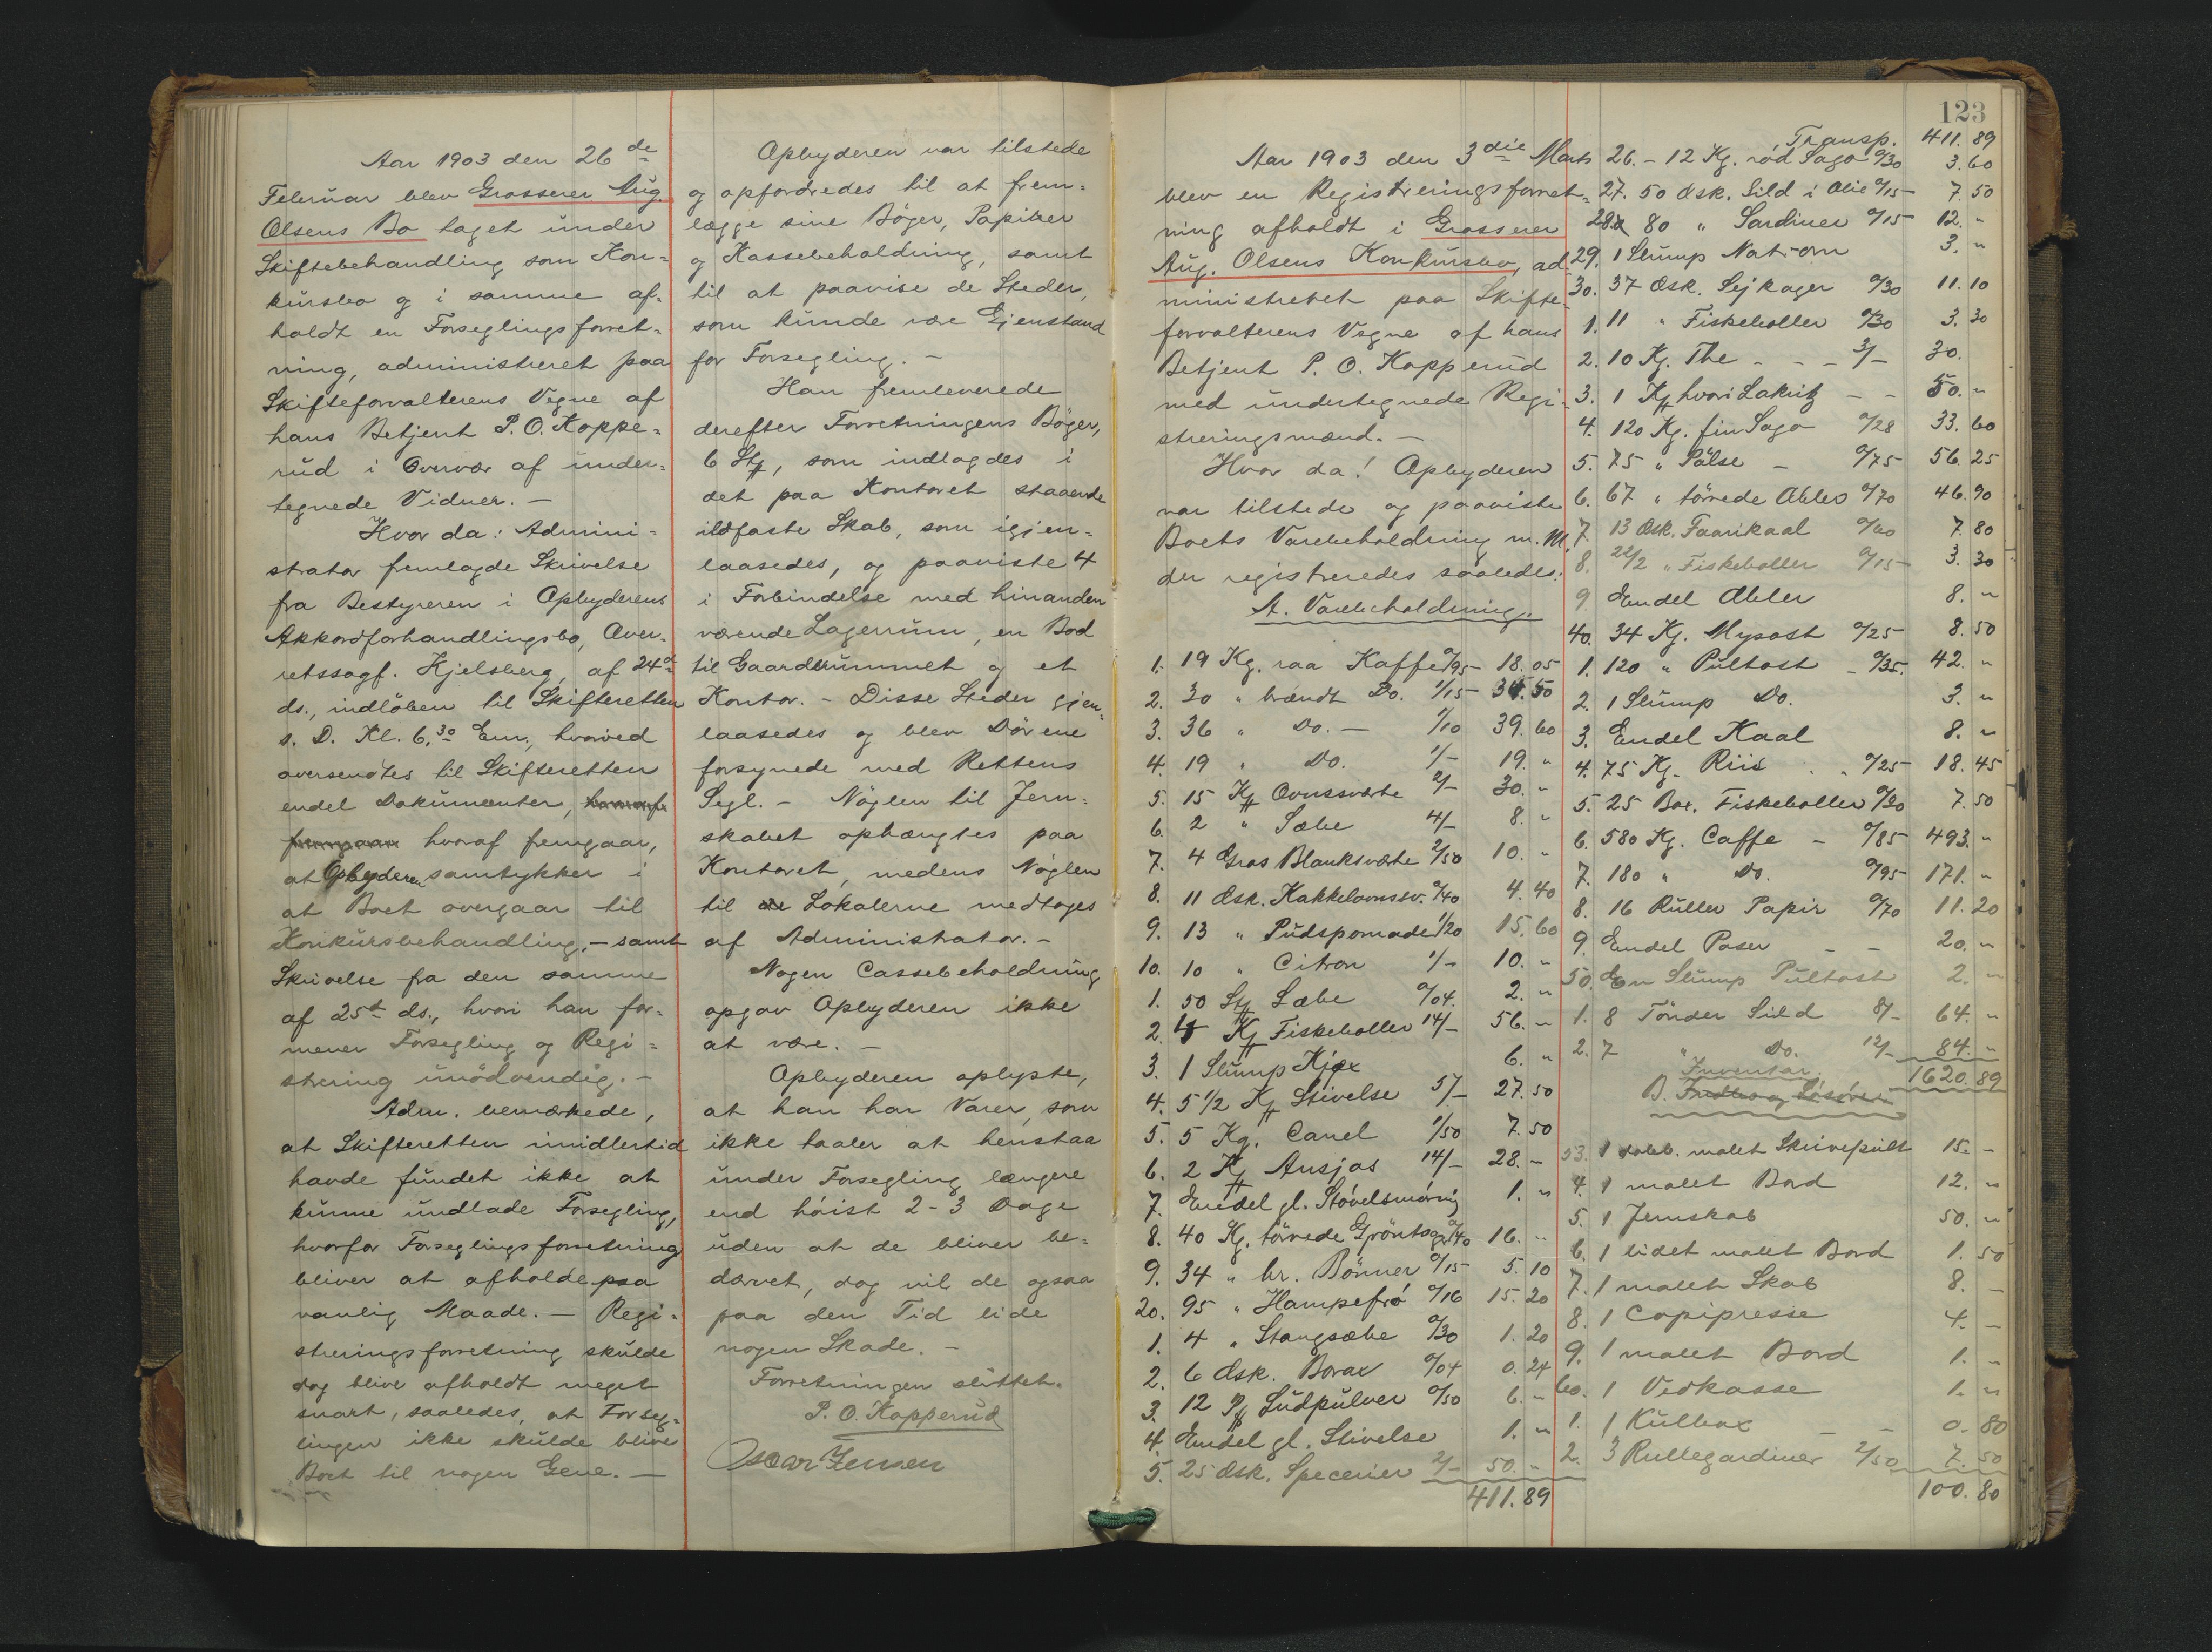 Aar 1903 den 26de
Februar blev Grosserer Aug.
Olsens Bo taget under
Skiftebehandling som Kon-
kursbo og i samme af-
holdt en Forseglingsforret-
ning, administreret paa
Skifteforvalterens Vegne af
hans Betjent P. O. Koppe-
rud i Overvær af under-
tegnede Vidner. —
Hvor da: Admini-
strator fremlagde Skrivelse
fra Bestyreren i Opbyderens
Akkordforhandlingsbo, Over-
retssagf. Hjelsberg, af 24de
ds., indløben til Skifteretten
s. D. Kl. 6.30 Em., hvorved
oversendtes til Skifteretten
endel Dokumenter,
fremgaar hvoraf fremgaar,
at Opbyderen samtykker i
at Boet overgaar til
Konkursbehandling, — samt
Skrivelse fra den samme
af 25de ds., hvori han for-
mener Forsegling og Regi-
strering unödvendig. —
Adm. bemærkede,
at Skifteretten imidlertid
havde fundet ikke at
kunne undlade Forsegling,
hvorfor Forseglingsforretning
bliver at afholde paa
vanlig Maade. — Regi-
streringsforretning skulde
dog blive afholdt meget
snart, saaledes, at Forseg-
lingen ikke skulde blive
Boet til nogen Gene. —
Opbyderen var tilstede
og opfordredes til at frem-
lægge sine Böger, Papirer
og Kassebeholdning, samt
til at paavise de Steder,
som kunde være Gjenstand
for Forsegling. —
Han fremleverede
derefter Forretningens Böger,
6 Stk, som indlagdes i
det paa Kontoret staaende
ildfaste Skab, som igjen-
laasedes, og paaviste 4
i Forbindelse med hinanden
værende Lagerrum, en Bod
til Gaardsrummet og et
Kontor. - Disse Steder gjen-
laasedes og blev Dörene
forsynede med Rettens
Segl. - Nöglen til Jern-
skabet ophængtes paa
Kontoret, medens Nöglen
til de Lokalerne medtoges
af Administrator. -
Nogen Cassebeholdning
opgav Opbyderen ikke
at være. —
Opbyderen oplyste,
at han har Varer, som
ikke taaler at henstaa
under Forsegling længere
end höist 2-3 Dage
uden at de bliver be-
dærvet, dog vil de ogsaa
paa den Tid lide
nogen Skade. —
Forretningen sluttet.
P. O. Kopperud
Oscar Jensen
123
Aar 1903 den 3die Marts
blev en Registreringsforret-
ning afholdt i Grosserer
Aug. Olsens Konkursbo, ad-
ministreret paa Skifte-
forvalterens Vegne af hans
Betjent P. O. Kopperud
med undertegnede Regi-
streringsmænd. —
Hvor da! Opbyderen
var tilstede og paaviste
Boets Varebeholdning m. M.,
der registreredes saaledes:
A. Varebeholdning.
1. 19 Kg. raa Kaffe 0/95 18.05
2. 30 " brændt Do. 1/15 34.50
3. 36 " Do. — 1/10 39.60
4. 19 " Do. 1/- 19. "
5. 15 Ks Ovnssværte 2/- 30. "
6. 2 " Sæbe 4/- 8. "
7. 4 Gros Blanksværte 2/50 10. "
8. 11 Æsk. Kakkelovnssv. 0/40 4.40
9. 13 " Pudspomade 1/20 15.60
10. 10 " Citron 1/- 10. "
1. 50 Stk Sæbe 0/04. 2. "
2. 4 Ks Fiskeboller 14/- 56. "
3. 1 Slump Kjæx 6. "
4. 5 1/2 Ks Stivelse 5/- 27.50
5. 5 Kg. Canel 1/50 7.50
6. 2 Ks Ansjos 14/- 28. -
7. Endel gl. Stövelsmöring 1. "
8. 40 Kg. törrede Gröntsager 0/40 16. "
9. 34 " br. Bönner 0/15 5.10
20. 95 " Hampefrö 0/16 15.20
1. 4 " Stangsæbe 0/30 1.20
2. 6 Æsk. Borax 0/04 0.24
3. 12 Pk Ludpulver 0/50 6. "
4. Endel gl. Stivelse 1. "
5. 25 Æsk. Specerier 2/- 50. "
411.89
Transp. 411.89
26. - 12 Kg. röd Sago 0/30 3.60
27. 50 Æsk. Sild i Olie 0/15 7.50
28. 80 " Sardiner 0/15 12. "
29. 1 Slump Natron 3. "
30. 37 Æsk. Sejkager 0/30 11.10
1. 11 " Fiskeboller 0/30 3.30
2. 10 Kg. The - - - 3/- 30.
3. 1 Ks hvori Lakritz - - 50. "
4. 120 Kg. fin Sago 0/28 33.60
5. 75 " Pölse - 0/75 56.25
6. 67 " törrede Æbler 0/70 46.90
7. 13 Æsk. Faarikaal 0/60 7.80
8. 22/2 " Fiskeboller 0/15 3.30
9. Endel Æbler 8. "
40. 34 Kg. Mysost 0/25 8.50
1. 120 " Pultost - 0/35. 42. "
2. 1 Slump Do. 3. "
3. Endel Kaal 8. "
4. 75 Kg. Riis . . 0/25 18.45
5. 25 Box. Fiskeboller 0/30 7.50
6. 580 Kg. Caffe - 0/85 493. "
7. 180 " Do. 0/95 171. "
8. 16 Ruller Papir 0/70 11.20
9. Endel Poser - - 20. "
50. En Slump Pultost 2. "
1. 8 Tönder Sild 8/- 64. "
2. 7 " Do. 12/- 84. "
1620.89
Inventar.
B.
53. 1 dobb. malet Skrivepult 15. -
4. 1 malet Bord 12. "
5. 1 Jernskab 50. "
6. 1 lidet malet Bord 1.50
7. 1 malet Skab 8. -
8. 1 Copipresse 4. -
9. 1 malet Bord 1. "
60. 1 Vedkasse 1. "
1. 1 Kulbox - - 0.80
2. 3 Rullegardiner 2/50 7.50
100.80